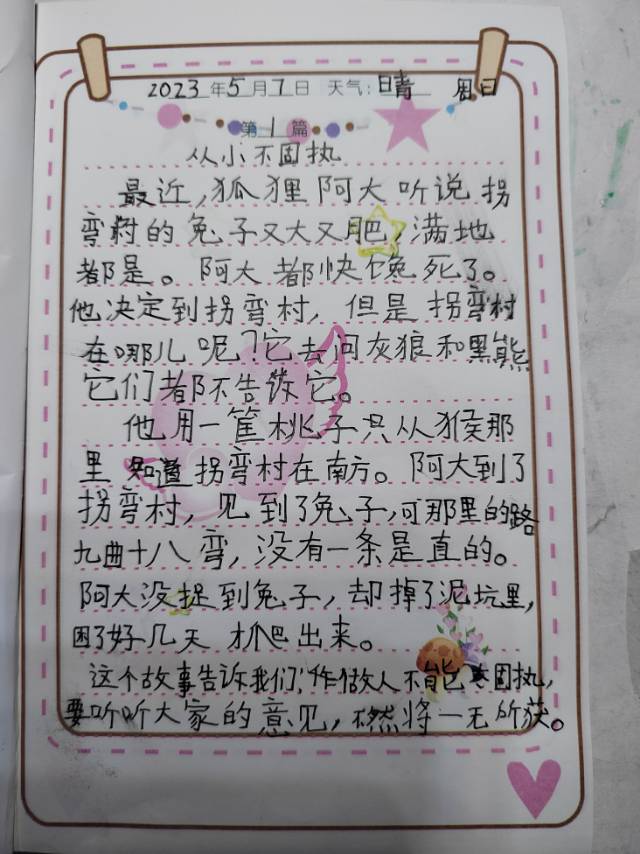 2023年5月7日 天气:晴 周日
第1篇
从小不固执
最近,狐狸阿大听说拐
弯村的兔子又大又肥,满地
都是。阿大都快馋死了。
他决定到拐弯村,但是拐弯村
在哪儿呢?它去问灰狼和黑熊
它们都不告诉它。
他用一筐桃子只从猴那
里知道拐弯村在南方。阿大到了
拐弯村,见到了兔子,可那里的路
九曲十八弯,没有一条是直的。
阿大没捉到兔子,却掉了泥坑里,
困了好几天才爬出来。
这个故事告诉我们,作做人不能固执,
要听听大家的意见,不然将一无所获。